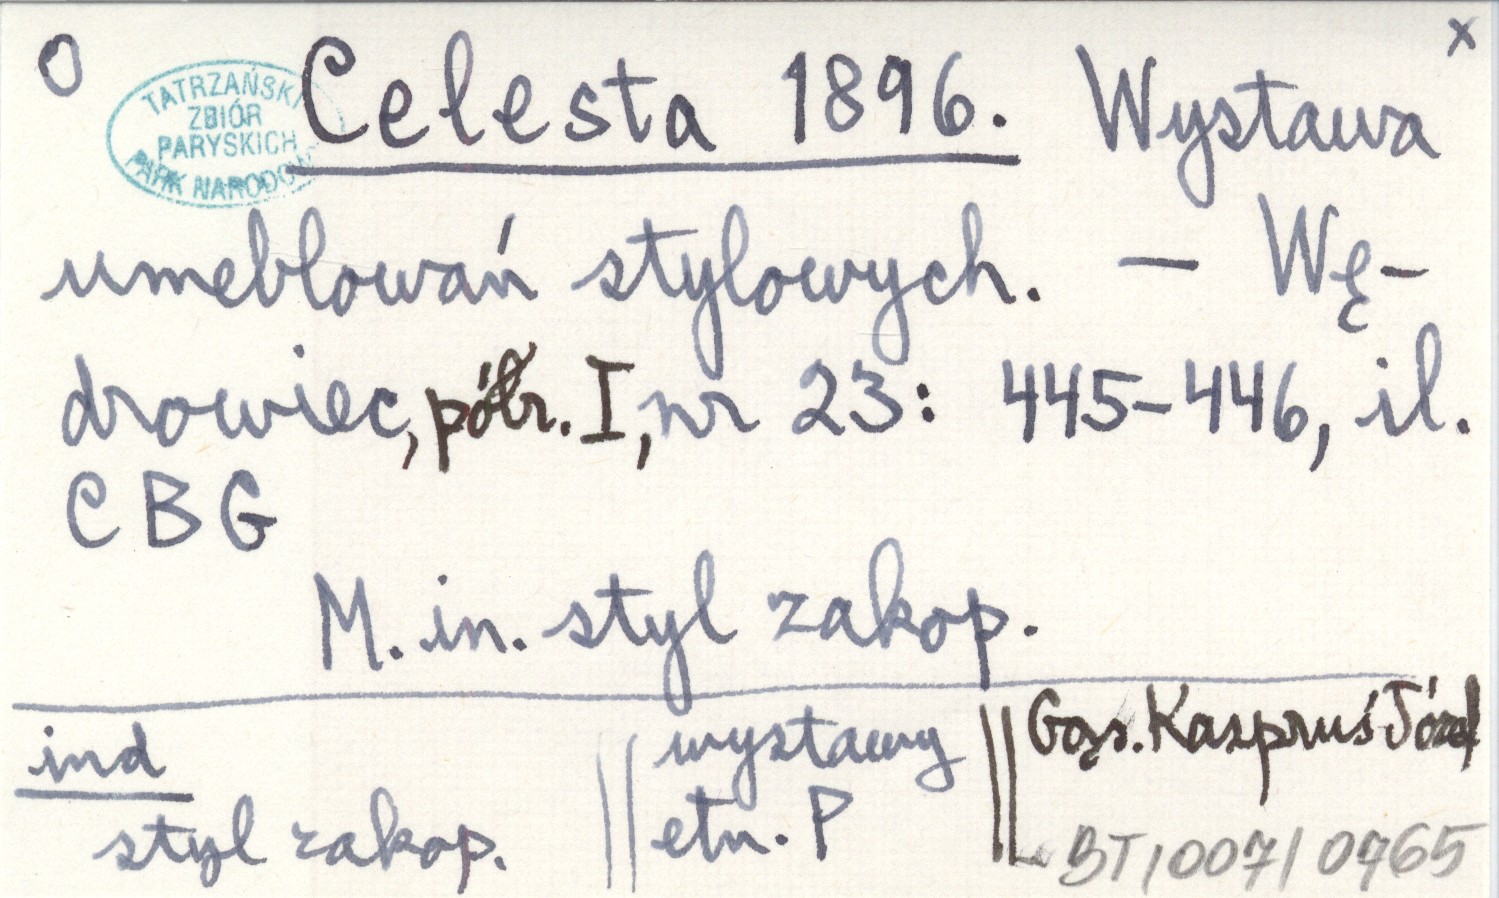 O x
TATRZAŃSKI
ZBIÓR
PARYSKICH
PARK NARODO
Celesta 1896. Wystawa
umeblowań stylowych. — Wę-
drowiec, półr. I, nr 23: 445-446, il.
CBG
M. in. styl zakop.
ind
styl zakop.
wystawy
etn. P
Gąs. Kaspruś Józef
BT/007/0765